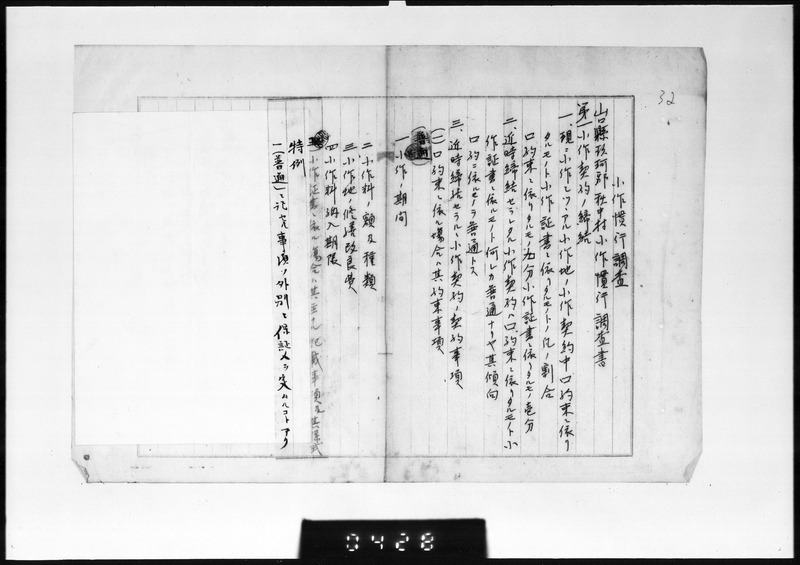 32
小作慣行調査
山口縣玖珂郡秋中村小作慣行調査書
第一 小作契約ノ締結
一、現ニ小作シツヽアル小作地ノ小作契約中口約束ニ依リ
タルモノト小作証書ニ依リタルモノトノ凡ノ割合
口約束ニ依リタルモノ九分小作証書ニ依リタルモノ壱分
二、近時締結セラレタル小作契約ハ口約束ニ依リタルモノト小
作証書ニ依ルモノト何レカ普通ナリヤ其傾向
口約ニ依ルモノヲ普通トス
三、近時締結セラルヽ小作契約ノ契約事項
(一)口約束ニ依ル場合ハ其約束事項
(普通)
一 小作ノ期間
二 小作料ノ額及種類
三 小作地ノ修繕改良費
四 小作料納入期限
小作証書ニ依ル場合ハ其主ナル記載事項及其様式
特例
一(普通)ニ記セル事項ノ外別ニ保証人ヲ定ムルコトアリ
0428